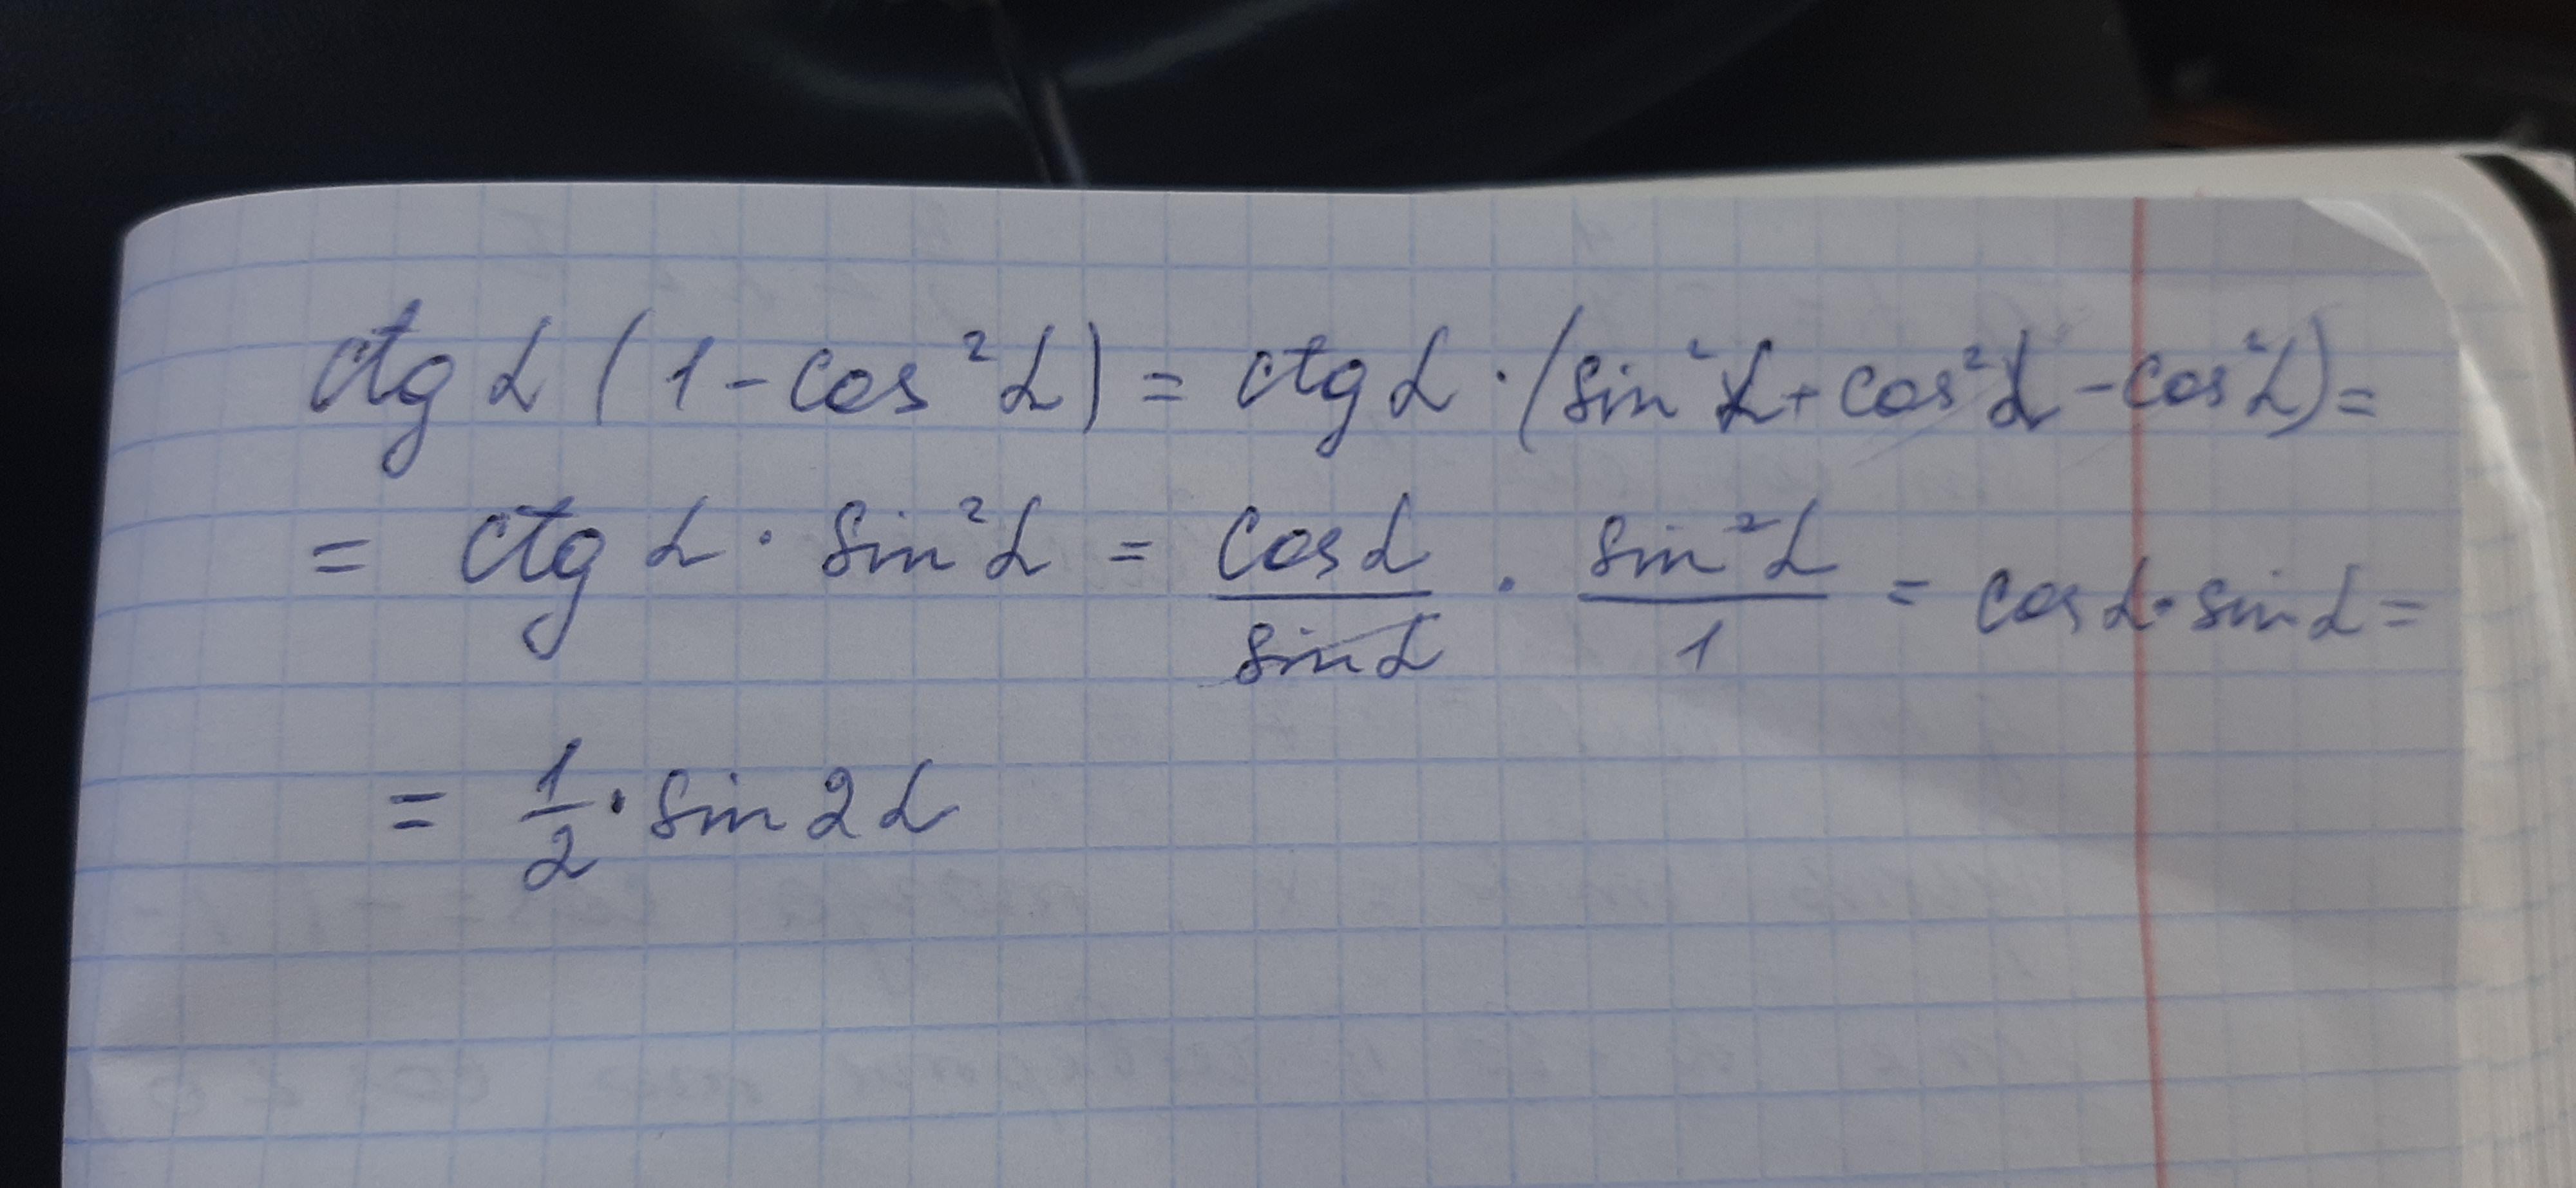 ctg α (1 - cos²α) = ctg α · (sin²α + cos²α - cos²α) =
= ctg α · sin²α = cos α / sin α · sin²α / 1 = cos α · sin α =
= 1/2 · sin 2α